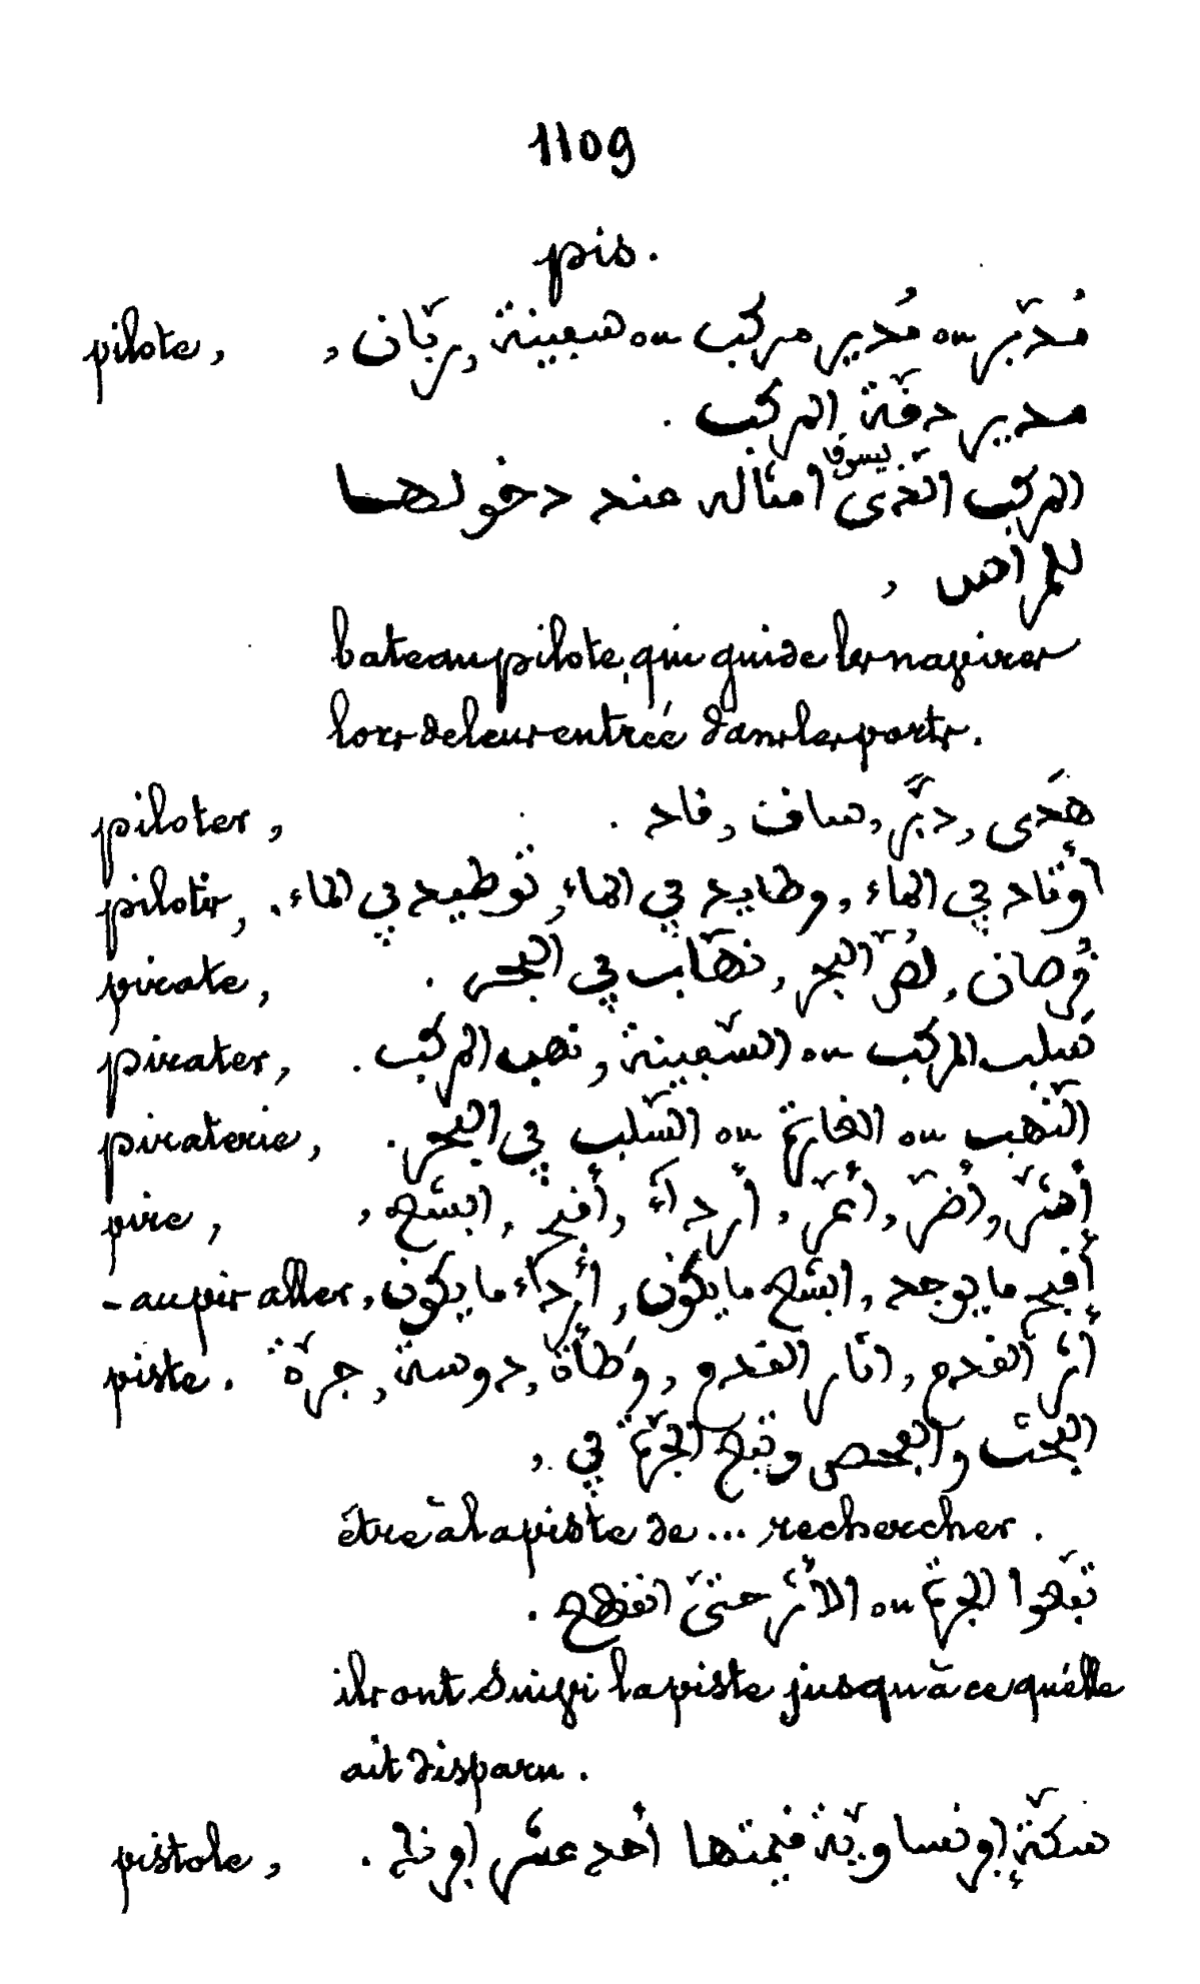 1109
pis.
pilote, مُدبّر ou مُدير مركب ou سفينة, ربّان,
مدير دفّة المركب.
المركب الّذى يسوق امثاله عند دخولها
للمراسى,
bateau pilote, qui guide les navires
lors de leur entrée dans les ports.
piloter, هَدى, دبّر, ساق, قاد.
pilotis, أوتاد في الماء, وطايد في الماء, توطيد في الماء.
pirate, قُرصان, لصّ البحر, نهّاب في البحر.
pirater, سَلب المركب ou السّفينة, نهب المركب.
piraterie, النّهب ou الغارة ou السّلب في البحر.
pire, أشرّ, أضرّ, أمرّ, أرداء, أقبح, ابشع,
- au pis aller, أقبح ما يوجد, ابشع ما يكون, أرداء ما يكون,
piste. أثر القدم, اثار القدم, وَطأة, دوسة, جرّة
البحث والفحص وتبع الجرّة في,
être à la piste de... rechercher.
تبعوا الجرّة ou الأثر حتّى انقطع.
ils ont suivi la piste jusqu'à ce qu'elle
ait disparu.
pistole, سكّة إفرنساويّة قيمتها أحد عشر افرنك.